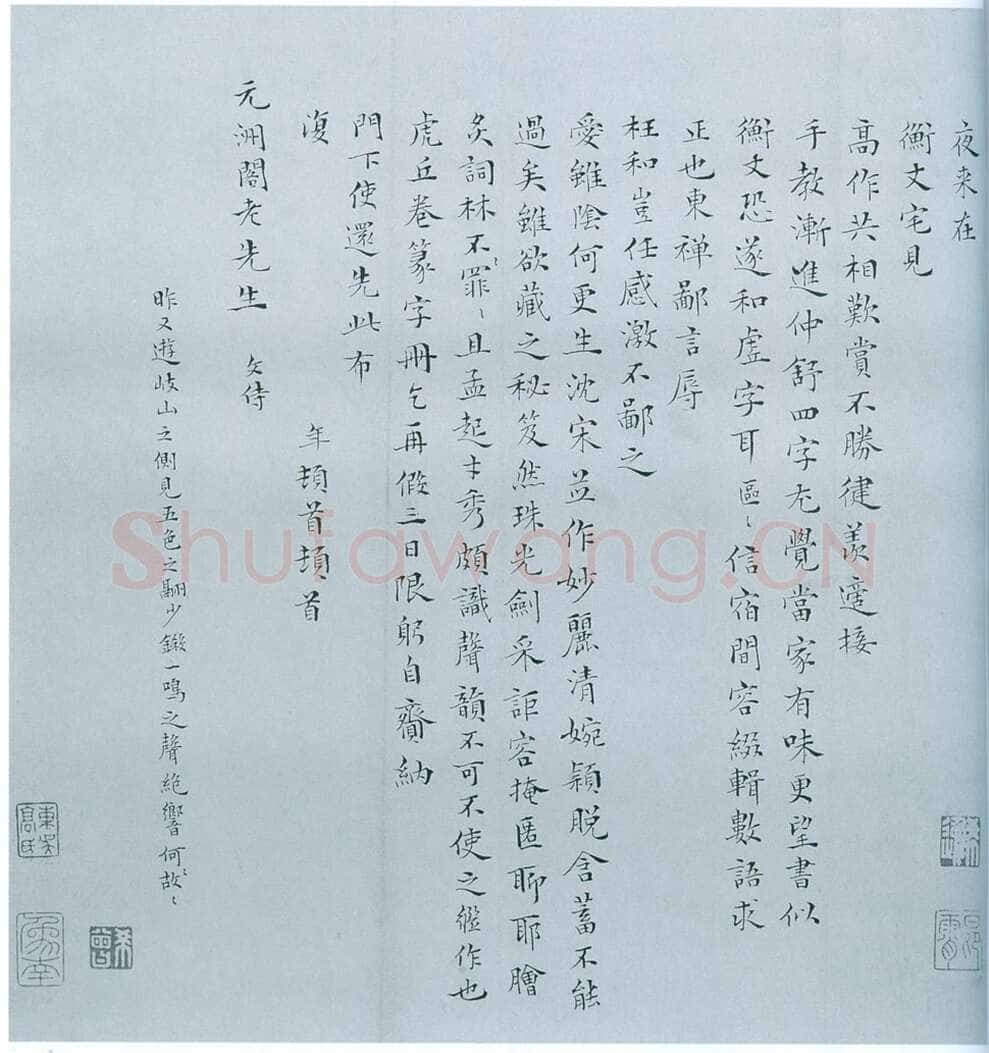 夜来在
衡丈宅見
高作共相歎賞不勝健羨適接
手教漸進仲舒四字尤覺當家有味更望書似
衡丈恐遂和虚字耳區〻信宿間容綴輯數語求
正也東禅鄙言辱
枉和豈任感激不鄙之
愛雖陰何更生沈宋並作妙麗清婉穎脱含蓄不能
過矣雖欲藏之秘笈然珠光劍采詎容掩匿聊耶膾
炙詞林不罪〻且孟起才秀頗識聲韻不可不使之繼作也
虎丘卷篆字冊乞再假三日限躬自齎納
門下使還先此布
復
年頓首頓首
元洲閣老先生 文侍
昨又遊岐山之側見五色之翮少鎩一鳴之聲絶響何故〻
東吳高氏
Shufawang.CN